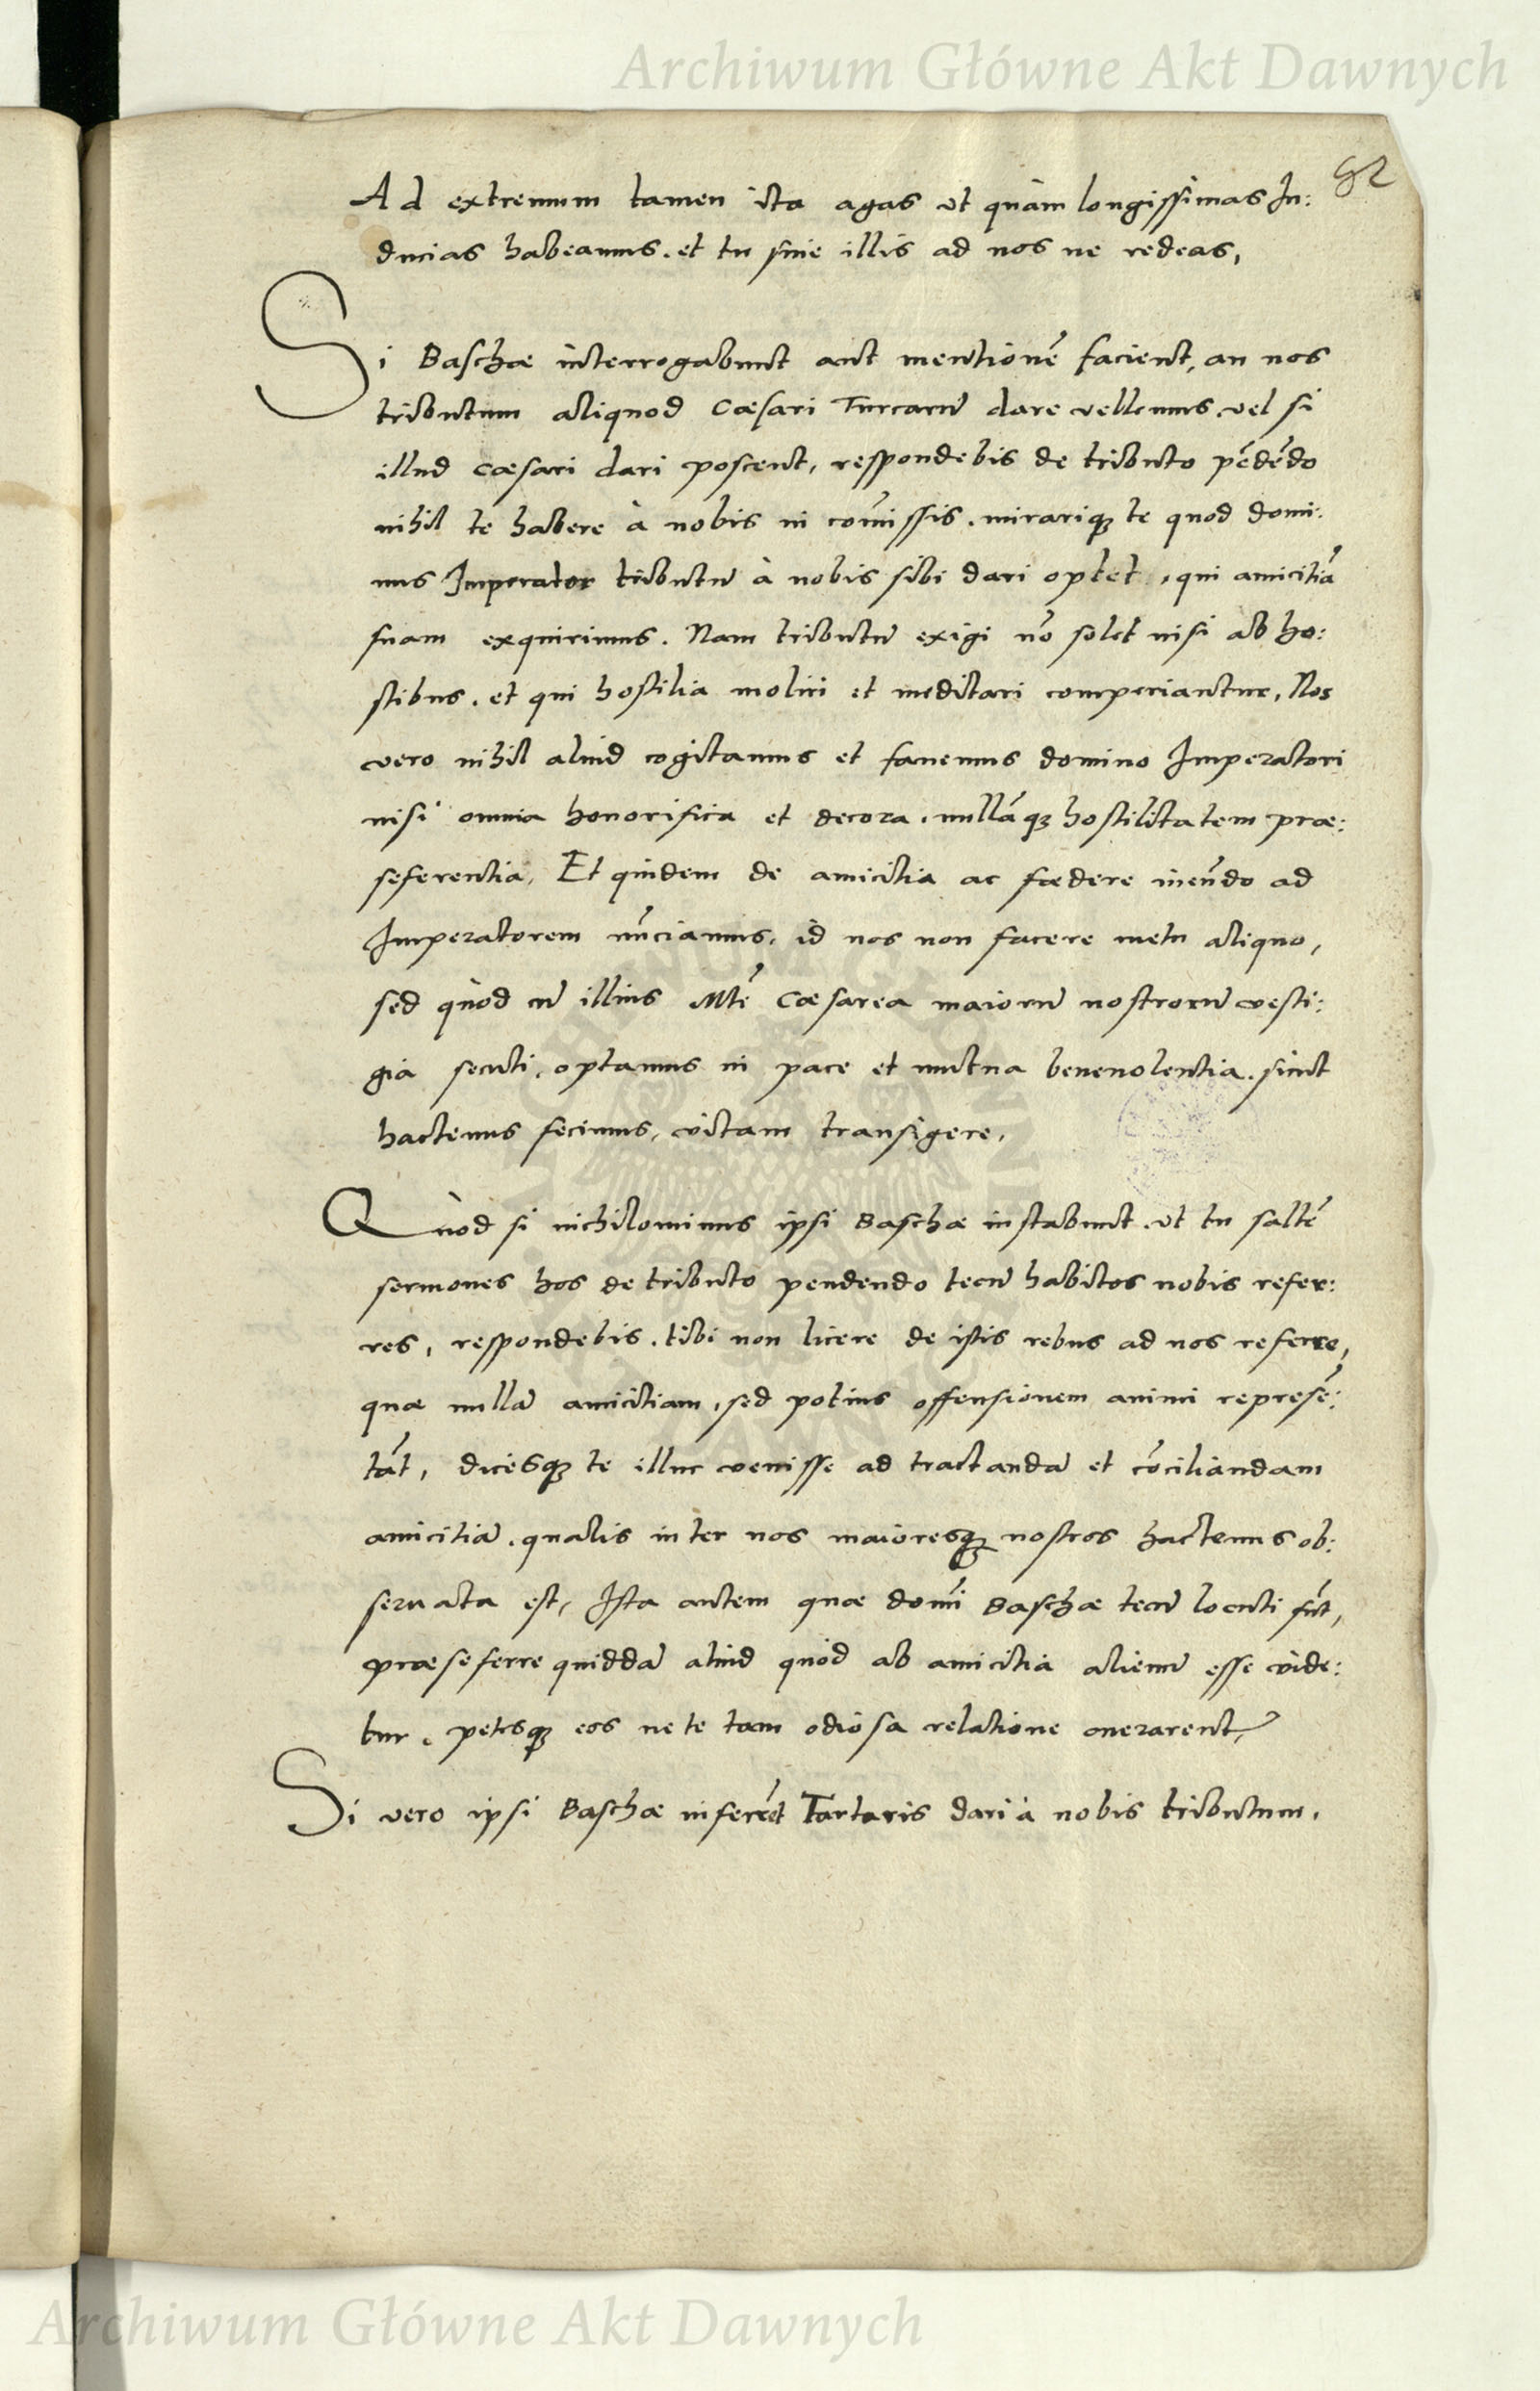 Archiwum Główne Akt Dawnych
82
Ad extremum tamen ita agas ut quàm longissimas In:
ducias habeamus. et tu sine illis ad nos ne redeas,
Si Baschæ interrogabunt aut mentionẽ facient, an nos
tributum aliquod Cæsari Turcarũ dare vellemus, vel si
illud cæsari dari poscent, respondebis de tributo pẽdẽdo
nihil te habere à nobis in cõmissis. mirariq₃ te quod domi:
nus Imperator tributũ à nobis sibi dari optet, qui amicitiã
suam exquirimus. Nam tributũ exigi nõ solet nisi ab ho:
stibus, et qui hostilia moliri et meditari comperiantur, Nos
vero nihil aliud cogitamus et fauemus domino Imperatori
nisi omnia honorifica et decora, nullãq₃ hostilitatem præ:
seferentia, Et quidem de amicitia ac fœdere ineũdo ad
Imperatorem nũciamus, id nos non facere metu aliquo,
sed quòd cũ illius Mtẽ Cæsarea maiorũ nostrorũ vesti:
gia secuti, optamus in pace et mutua beneuolentia, sicut
hactenus fecimus, vitam transigere,
Quòd si nichilominus ipsi Baschæ instabunt, ut tu saltẽ
sermones hos de tributo pendendo tecũ habitos nobis refer:
res, respondebis, tibi non licere de istis rebus ad nos referre,
quæ nullã amicitiam, sed potius offensionem animi represẽ:
tãt, dicesq₃ te illuc venisse ad tractandã et cõciliandam
amicitiã, qualis inter nos maioresq₃ nostros hactenus ob:
seruata est, Ista autem quæ domĩ Baschæ tecũ locuti sũt,
præseferre quiddã aliud quòd ab amicitia alienũ esse vide:
tur, petesq₃ eos ne te tam odiosa relatione onerarent,
Si vero ipsi Baschæ inferrẽt Tartaris dari à nobis tributum,
Archiwum Główne Akt Dawnych